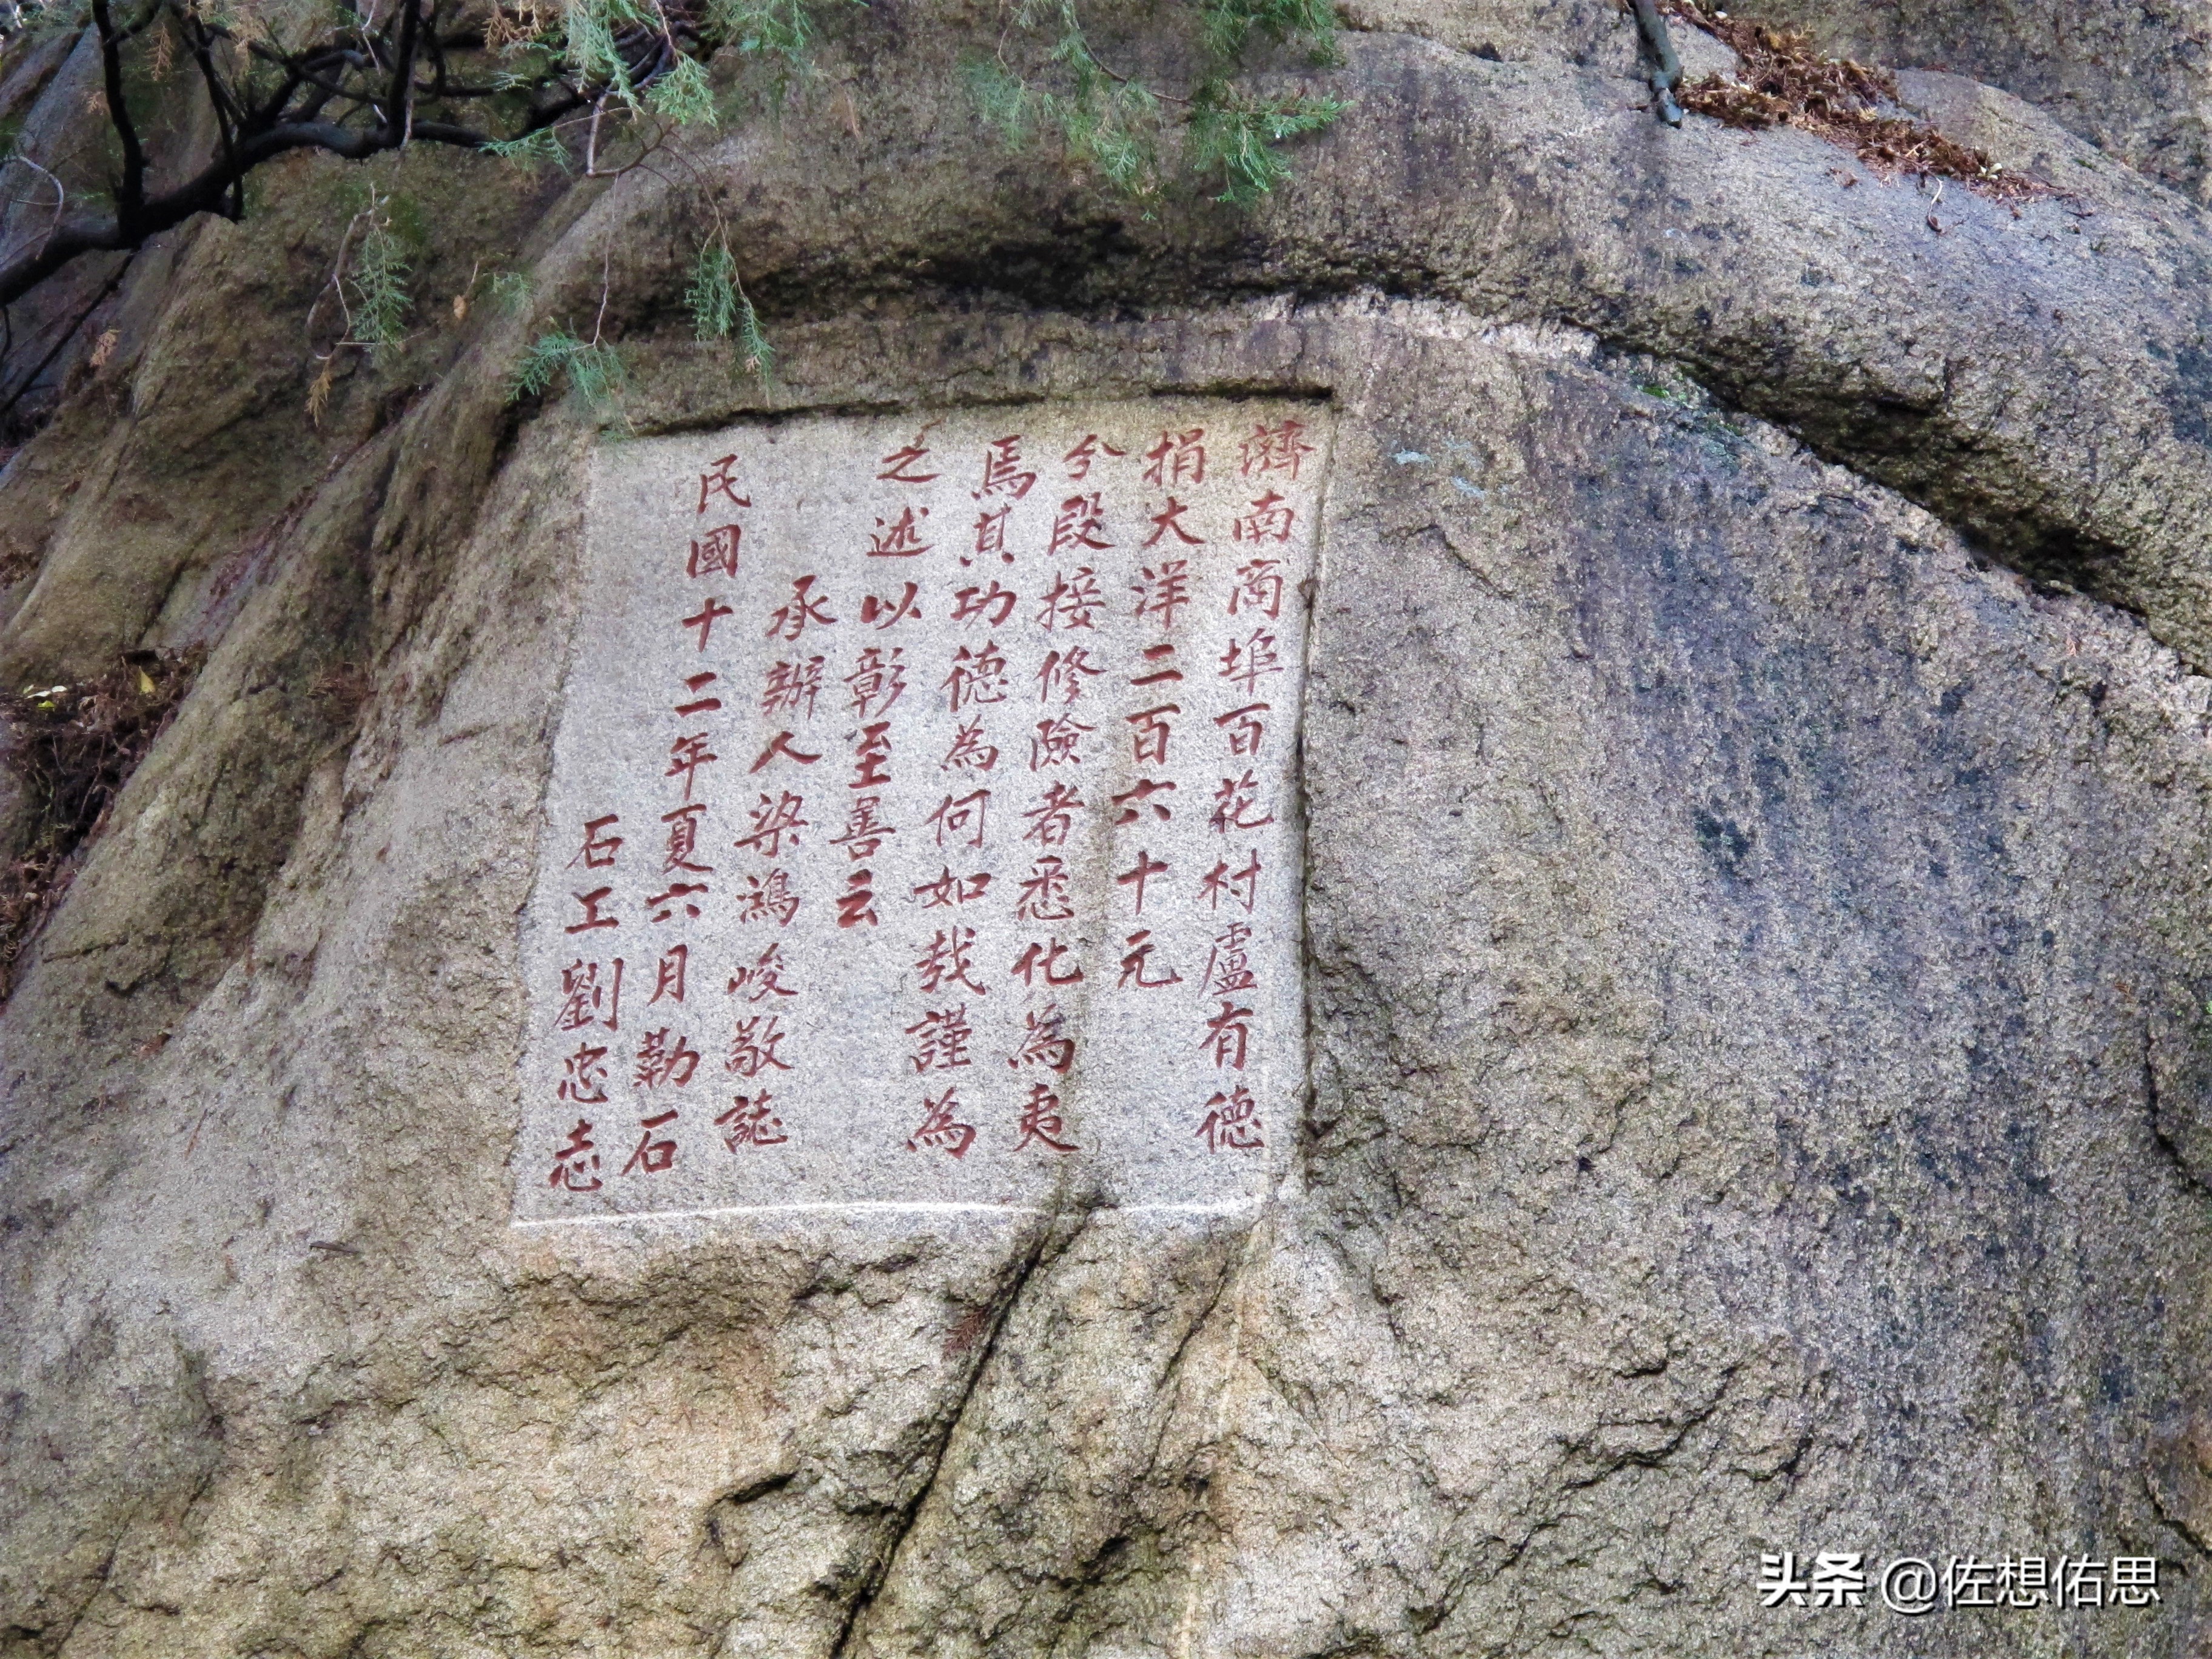 濟南商埠百花村盧有德
捐大洋二百六十元
分段接修險者悉化為夷
焉其功德為何如哉謹為
之述以彰至善云
承辦人梁鴻峻敬誌
民國十二年夏六月勒石
石工劉忠志
头条 @佐想佑思